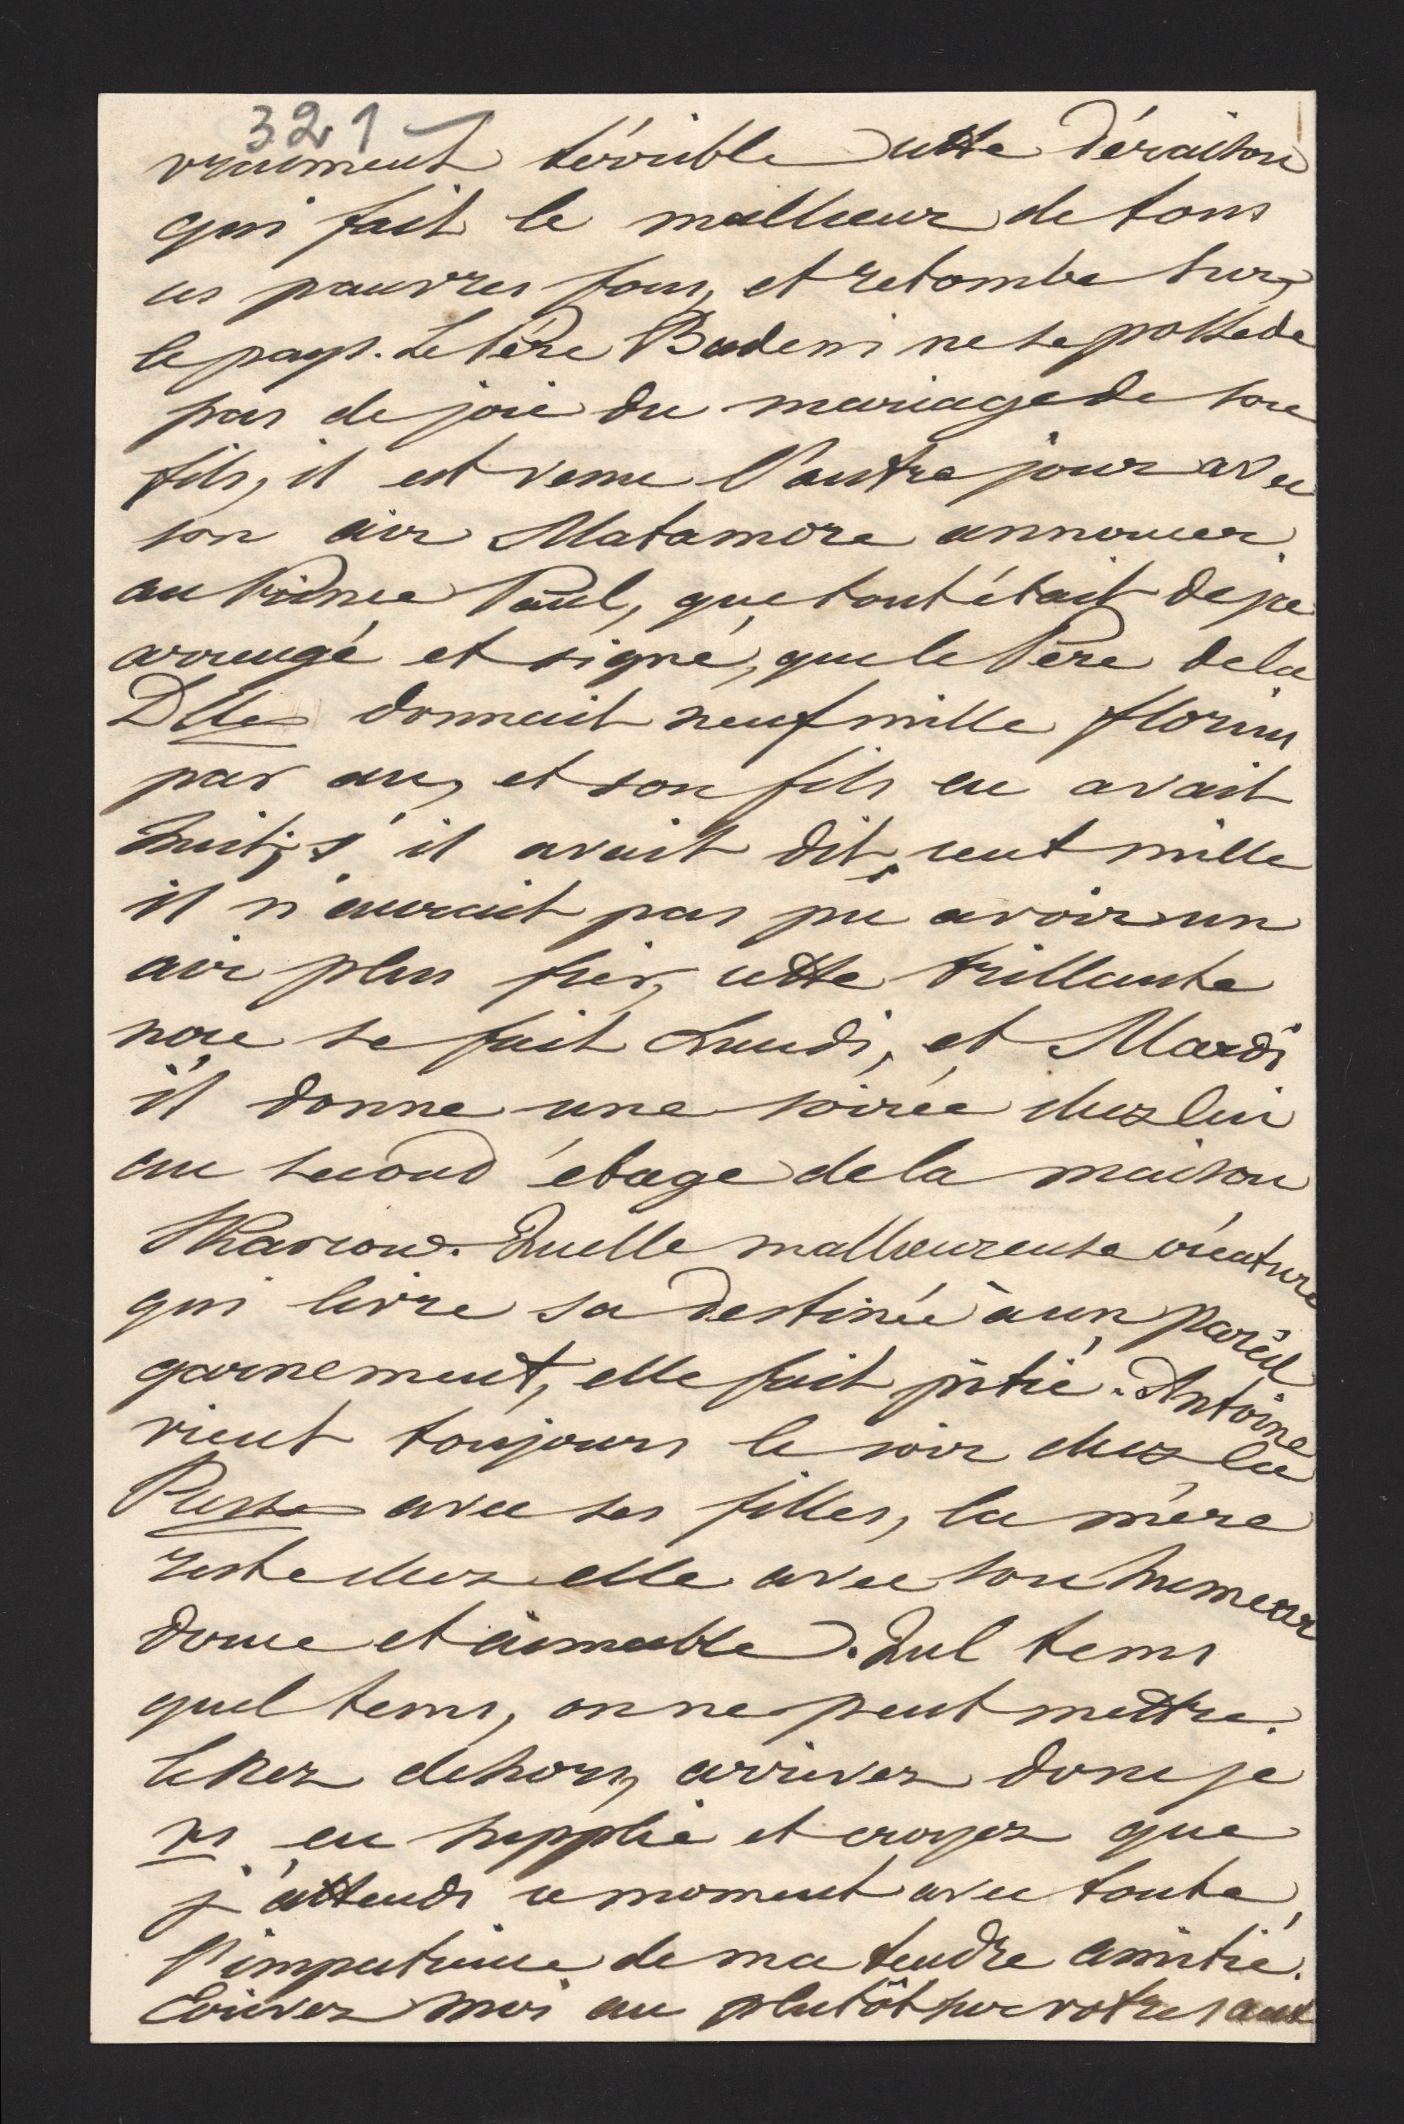 321
vraiment terrible cette déraison
qui fait le malheur de tous
ces pauvres fous, et retombe sur
le pays. Le Père Badeni ne se possede
pas de joie du mariage de son
fils, il est venu l'autre jour avec
son air Matamore annoncer
au Prince Paul, que tout était deja
arrangé et signé, que le Père de la
Dlle donnait neuf mille florins
par an, et son fils en avait
huit; s'il avait dit cent mille
il n'aurait pas pu avoir un
air plus fier, cette brillante
noce se fait Lundi, et Mardi
il donne une soirée chez lui
au second étage de la maison
Quelle malheureuse créature
qui livre sa destinée à un pareil
garnement, elle fait pitié. Antoine
vient toujours le soir chez la
Psse avec ses filles, la mère
reste chez elle avec son humeur
douce et aimable. Quel tems
quel tems, on ne peut mettre
le nez dehors, arrivez donc je
vs en supplie et croyez que
j'attends ce moment avec toute
l'impatience de ma tendre amitié.
Ecrivez moi au plutôt sur votre santé